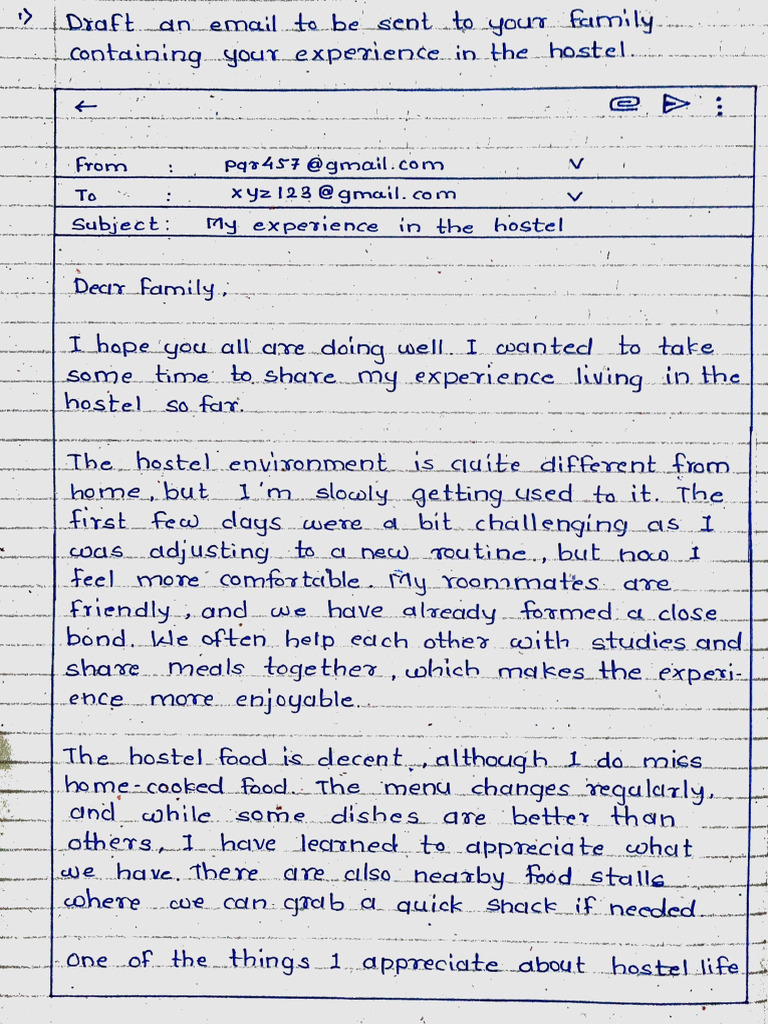 1) Draft an email to be sent to your family
containing your experience in the hostel.
From : pqr457@gmail.com
To : xyz123@gmail.com
Subject : My experience in the hostel
Dear Family,
I hope you all are doing well. I wanted to take
some time to share my experience living in the
hostel so far.
The hostel environment is quite different from
home, but I'm slowly getting used to it. The
first few days were a bit challenging as I
was adjusting to a new routine, but now I
feel more comfortable. My roommates are
friendly, and we have already formed a close
bond. We often help each other with studies and
share meals together, which makes the experi-
ence more enjoyable.
The hostel food is decent, although I do miss
home-cooked food. The menu changes regularly,
and while some dishes are better than
others, I have learned to appreciate what
we have. There are also nearby food stalls
where we can grab a quick snack if needed.
One of the things I appreciate about hostel life